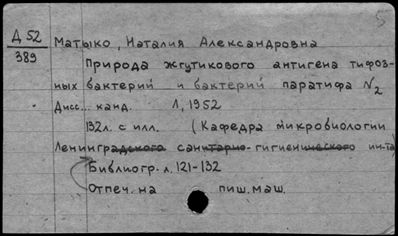 Д 52
389
Матыко, Наталия Александровна
Природа жгутикового антигена тифоз-
ных бактерий и бактерий паратифа N2
Дисс... канд. Л, 1952
132л. с илл. (Кафедра микробиологии
Ленинградского санитарно-гигиенического ин-та)
Библиогр. л. 121-132
Отпеч. на пиш. маш.